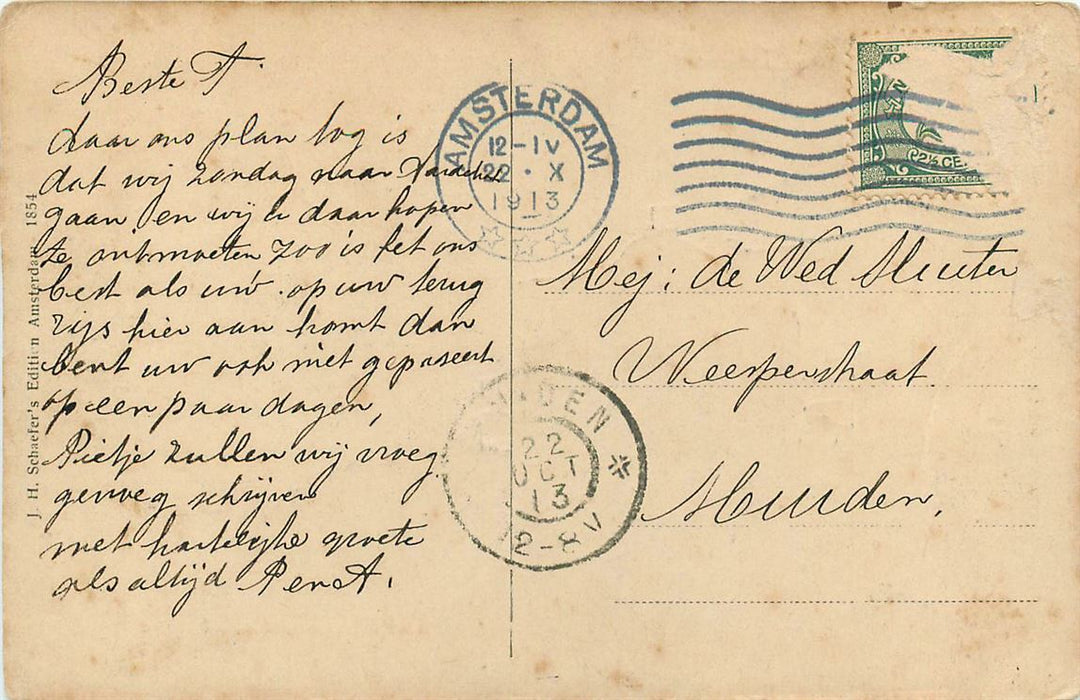 Beste T.
daar ons plan tog is
dat wij zondag naar
gaan en wij u daar hopen
te ontmoeten zoo is het ons
best als uw op uw terug
rijs hier aan komt dan
bent uw ook niet gepreseert
op een paar dagen,
Pietje zullen wij vroeg
genoeg schrijven
met hartelijke groete
als altijd P en A.
J. H. Schaefer's Edition Amsterdam 1854
AMSTERDAM
12-IV
22 · X
1913
2½ CE
Mej: de Wed Sluiter
Weesperstraat
Muiden.
MUIDEN
22
OCT
13
12-8V